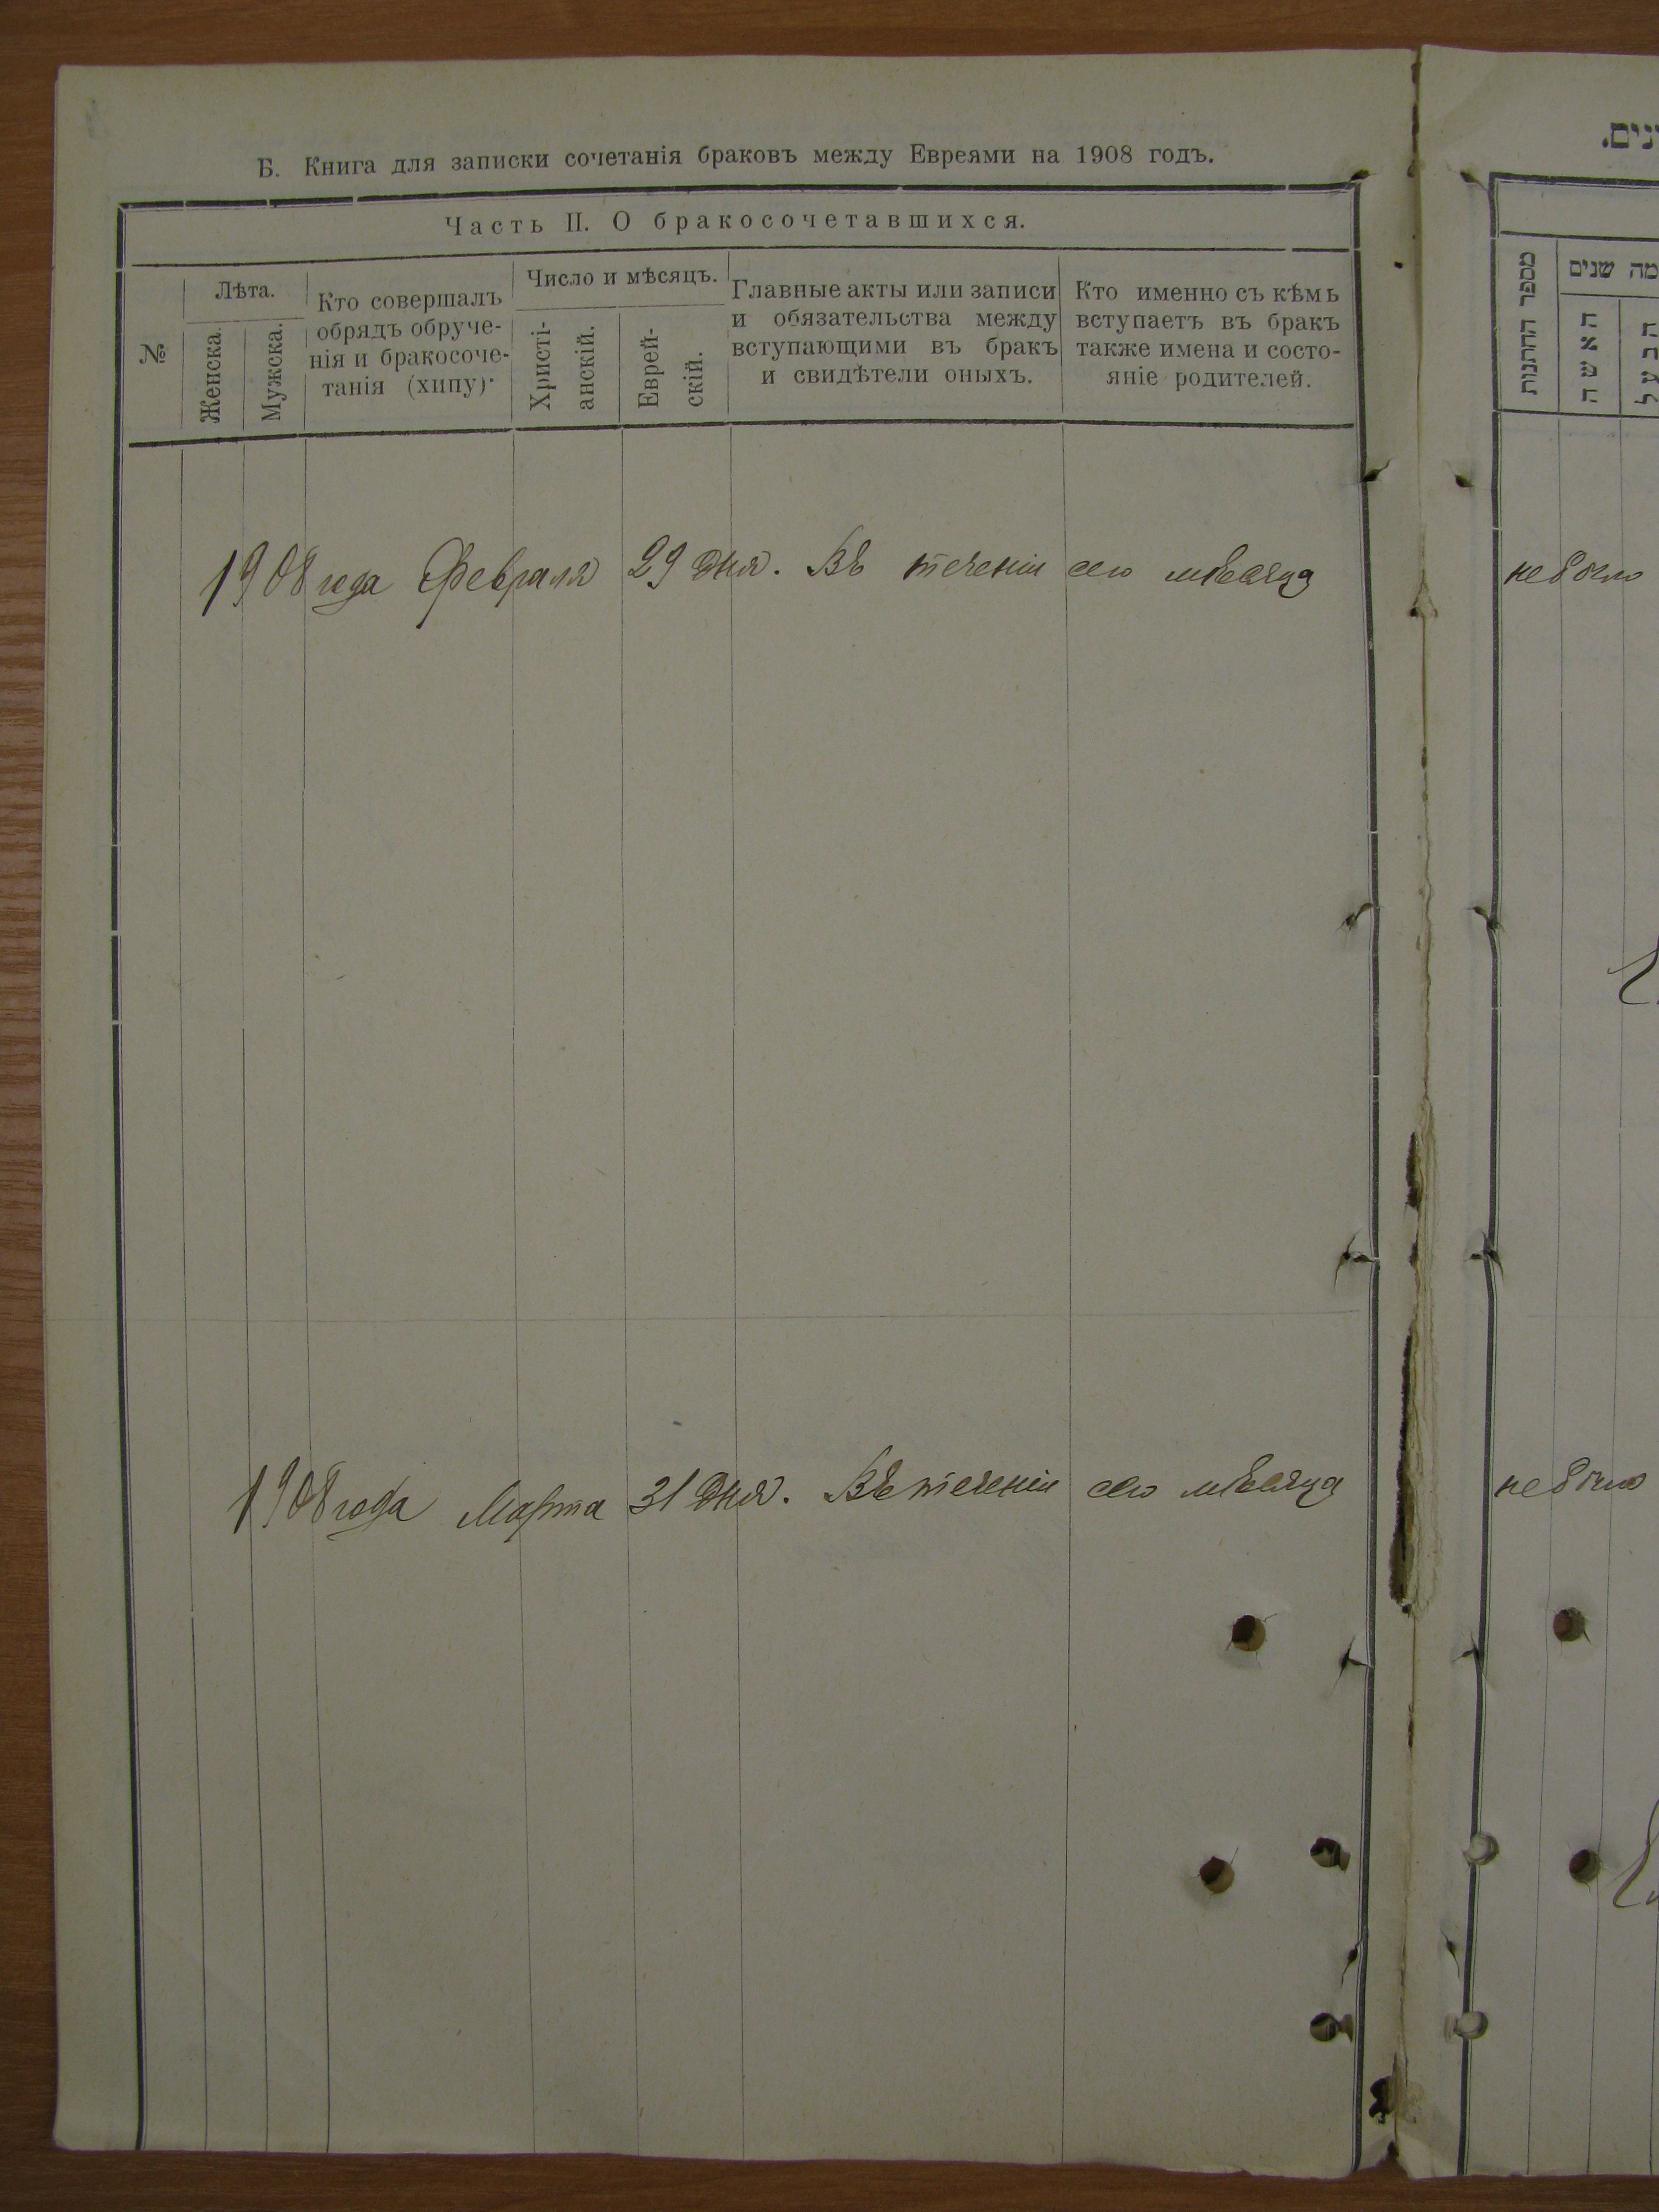 Б. Книга для записки сочетанія браковъ между Евреями на 1908 годъ.
Часть II. О бракосочетавшихся.
№
Лѣта.
Женска.
Мужска.
Кто совершалъ
обрядъ обруче-
нія и бракосоче-
танія (хипу).
Число и мѣсяцъ.
Христі-
анскій.
Еврей-
скій.
Главные акты или записи
и обязательства между
вступающими въ бракъ
и свидѣтели оныхъ.
Кто именно съ кѣмъ
вступаетъ въ бракъ
также имена и состо-
яніе родителей.
1908 года Февраля 29 дня. Въ теченіи сего мѣсяца
1908 года Марта 31 дня. Въ теченіи сего мѣсяца
מספר החתנות
מה שנים
האשה
הבעל
не было
не было